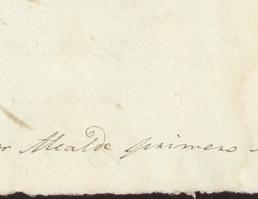 or Alcalde primero